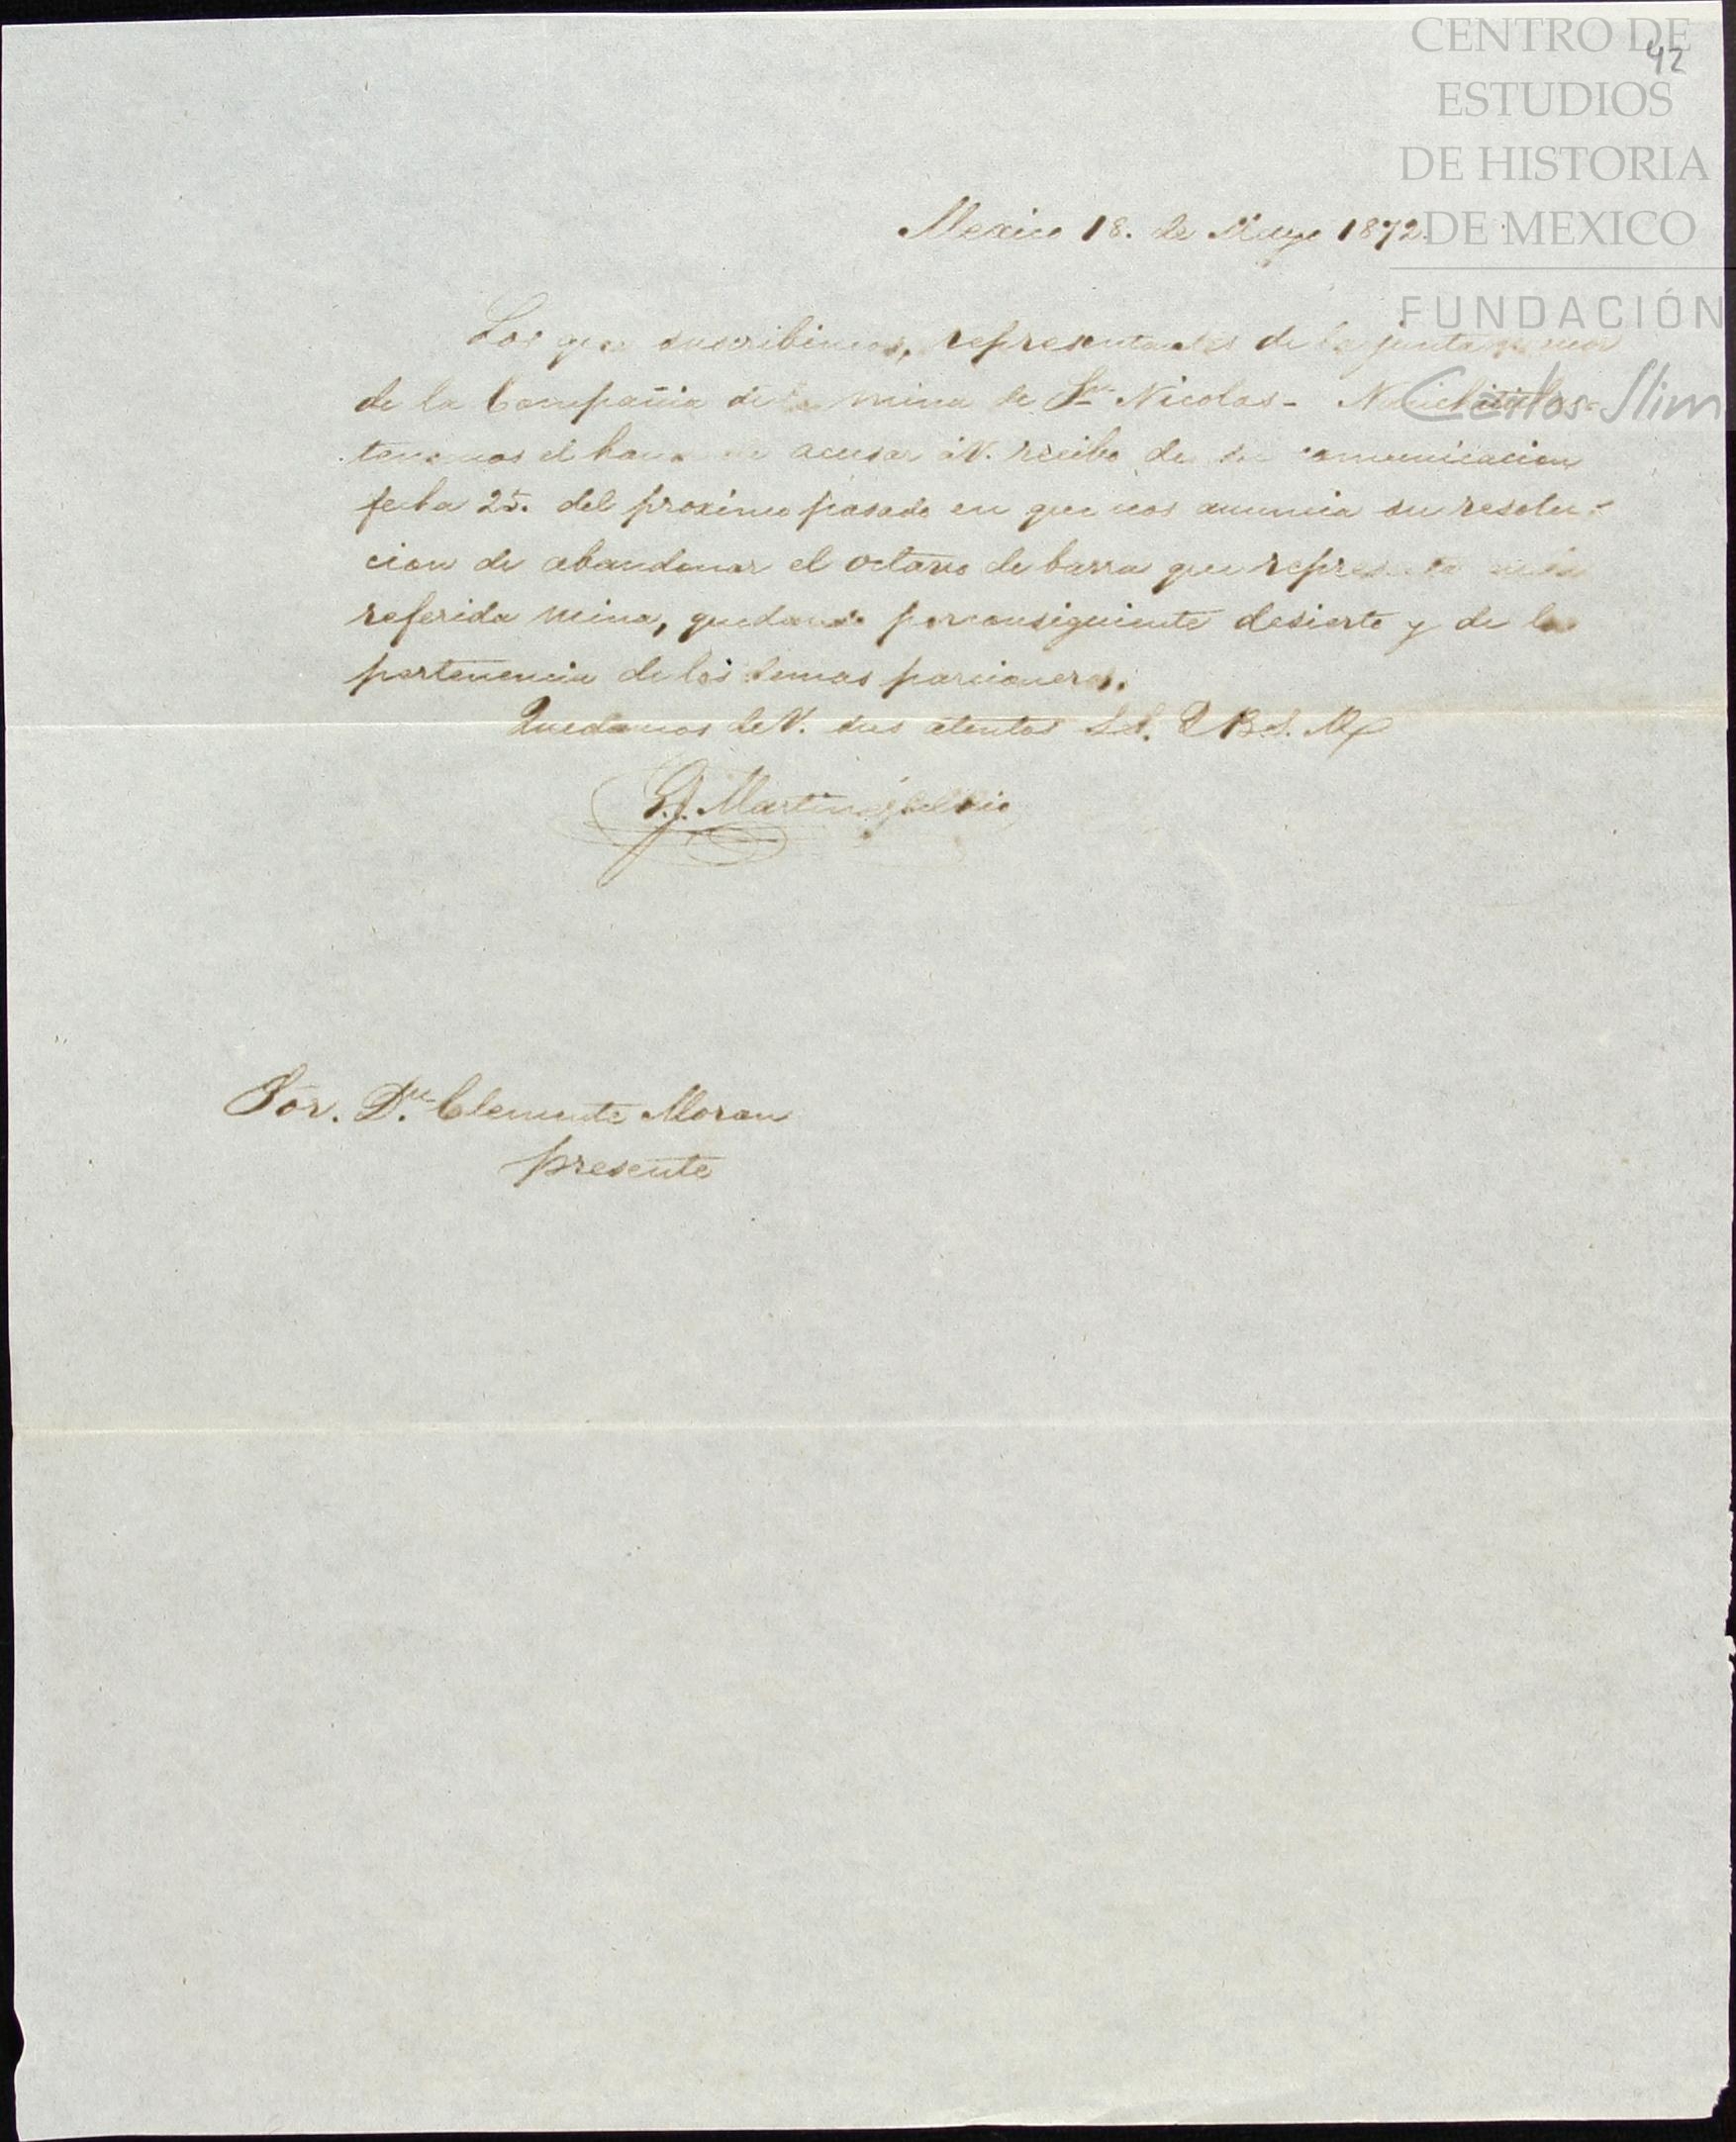 42
CENTRO DE
ESTUDIOS
DE HISTORIA
DE MEXICO
FUNDACIÓN
Carlos Slim
Mexico 18. de Mayo 1872.
Los que suscribimos, representantes de la junta
de la Compañia de la mina de Sn. Nicolas-
tenemos el honor de acusar à V. recibo de su comunicacion
fecha 25. del proximo pasado en que nos anuncia su resolu-
cion de abandonar el octavo de barra que representa en la
referida mina, quedando porconsiguiente desierto y de la
pertenencia de los demas parcioneros.
Quedamos de V. sus atentos S.S. Q B.S. M.
Martinez del Rio
Sor. Dn. Clemente Moran
presente